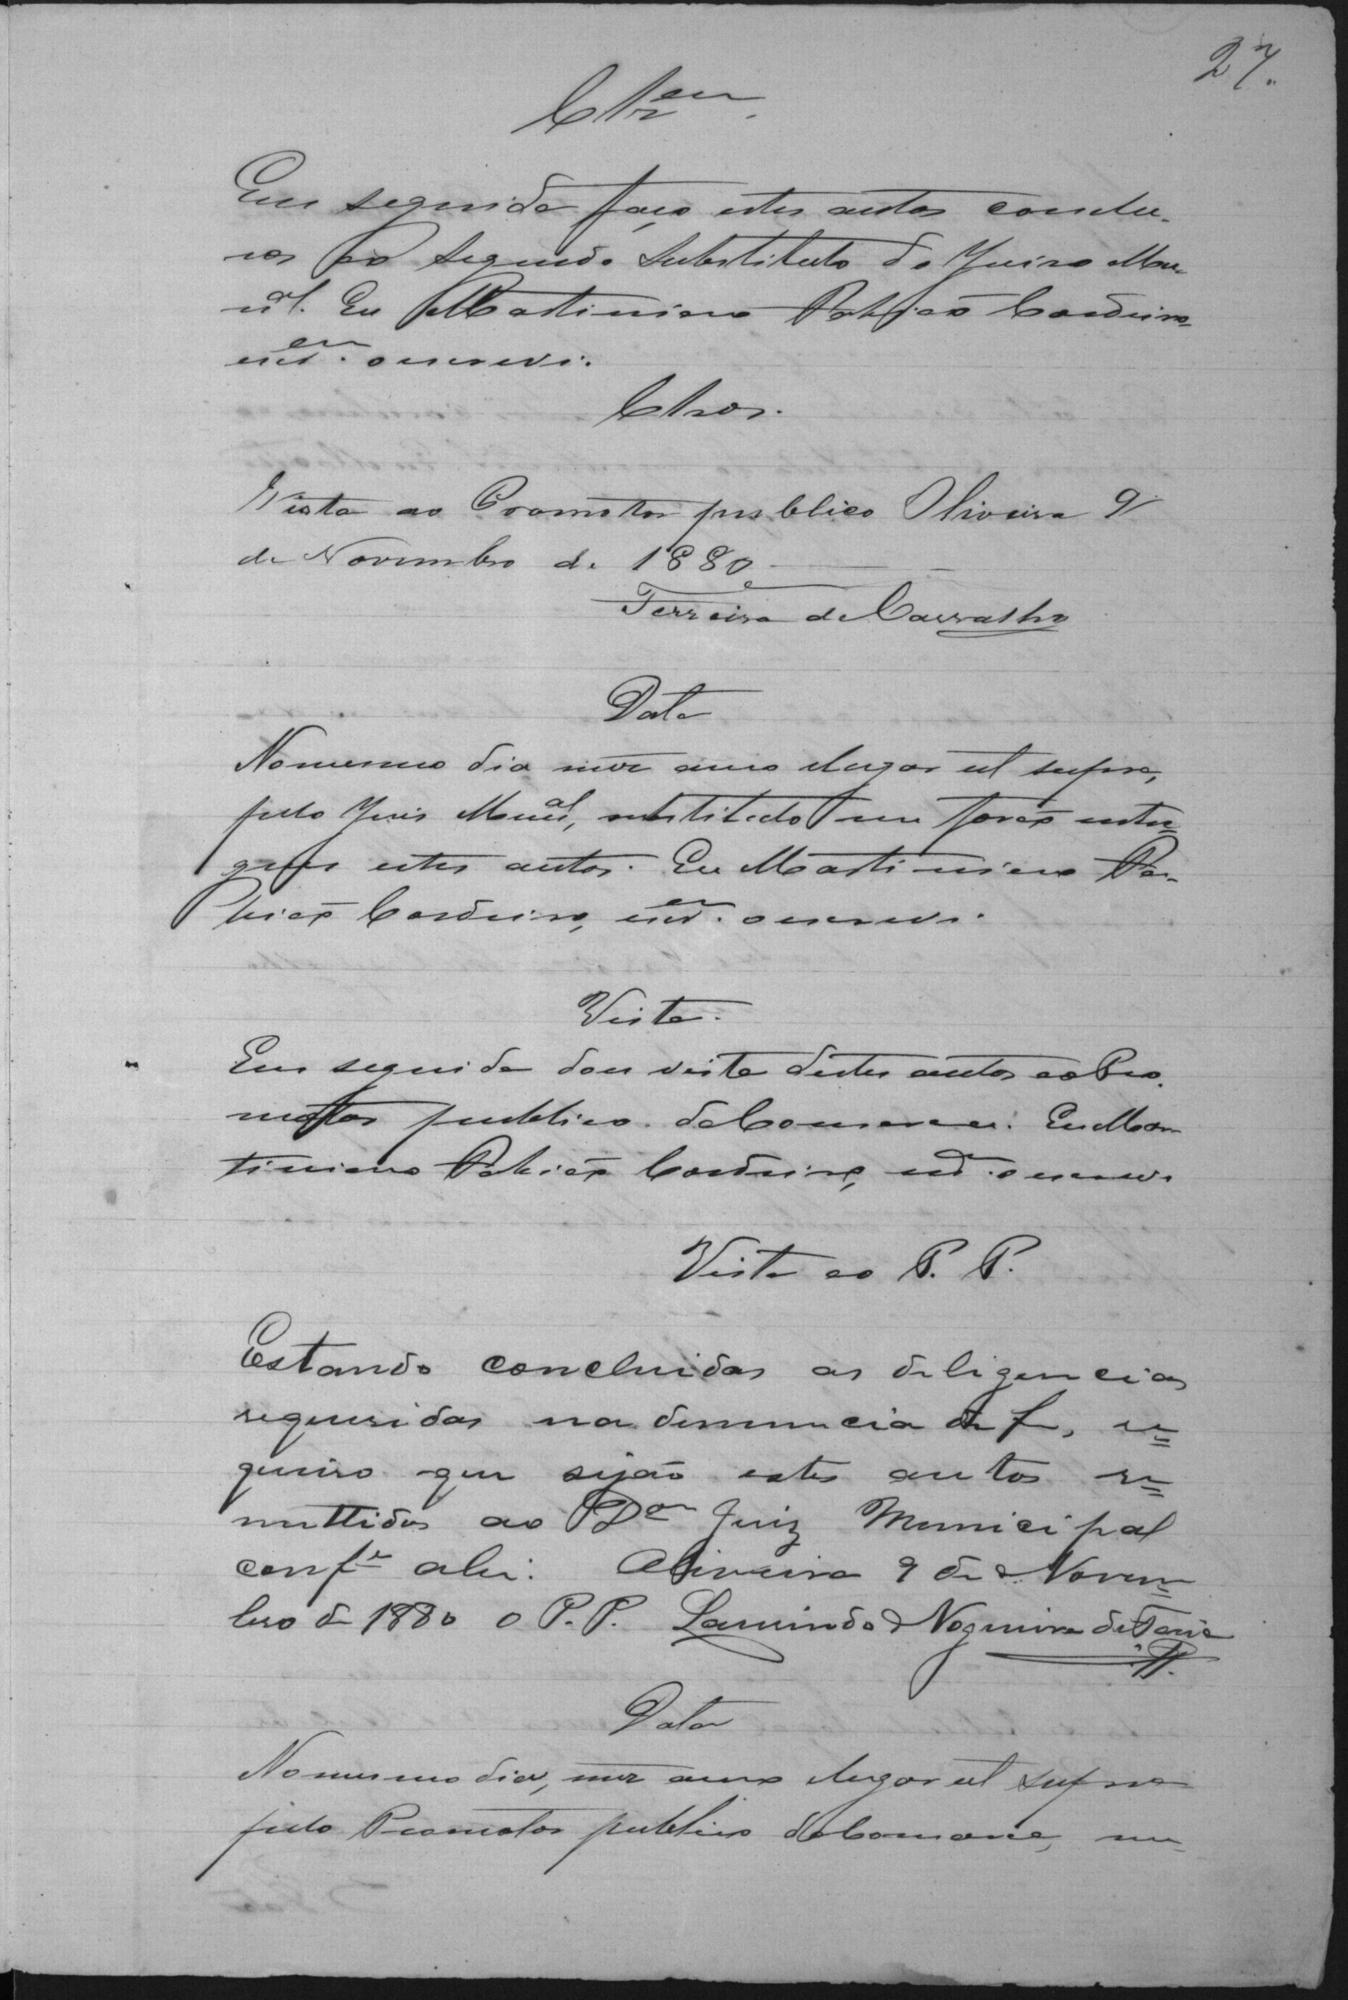 27.
Clsam.
Em seguida faço estes autos conclu-
sos ao segundo substituto do Juiso Mu-
nal. Eu Martiniano Patricio Cordeiro
escam. o escrevi.
Clsos.
Vista ao Promotor publico Oliveira 9
de Novembro de 1880
Ferreira de Carvalho
Data
No mesmo dia mez anno e lugar ut supra,
pelo Juis Munal, substituto me forão entre=
gues estes autos. Eu Martiniano Pa-
tricio Cordeiro, escam. o escrevi.
Vista.
Em seguida dou vista destes autos ao Pro-
motor publico da Comarca. Eu Mar
tiniano Patricio Cordeiro, escm. o escrevi
Vista ao P. P.
Estando concluidas as deligencias
requeridas na denuncia de f, re=
queiro que sejão estes autos re=
mettidos ao Dor Juiz Municipal
confe a lei. Oliveira 9 de Novem=
bro de 1880 o P. P. Laurindo Nogueira de Faria
Data
No mesmo dia, mez anno e lugar ut supra
pelo Promotor publico da Comarca, me